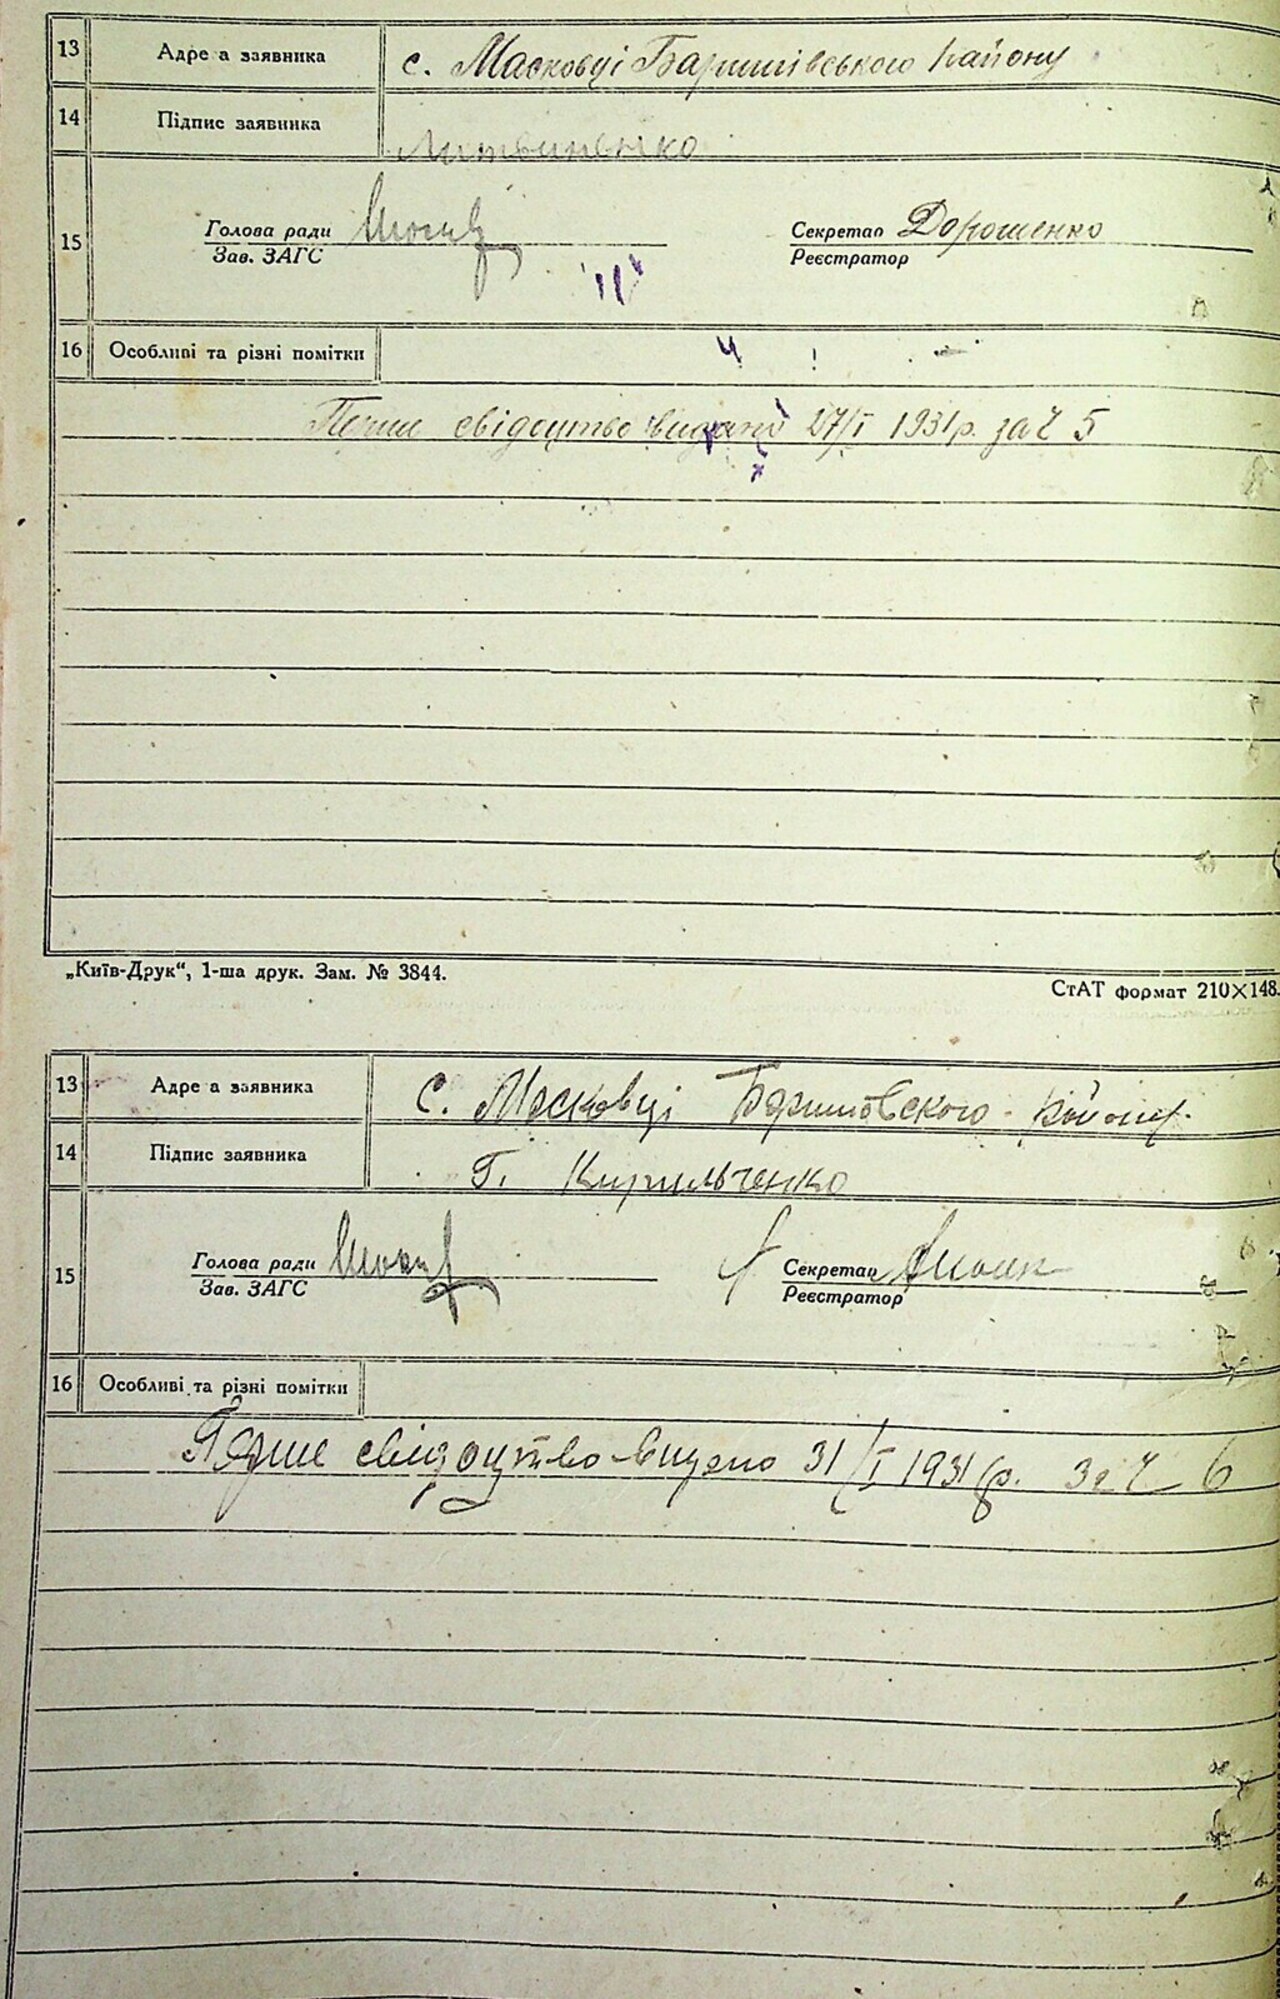 13 Адре а заявника с. Масковці Баришівського району
14 Підпис заявника Литвиненко
15 Голова ради Секретар Дорошенко
Зав. ЗАГС Реєстратор
16 Особливі та різні помітки
Перше свідоцтво видано 27/I 1931 р. за Ч 5
„Київ-Друк“, 1-ша друк. Зам. № 3844.
СтАТ формат 210×148.
13 Адре а заявника С. Масковці Баришовского району
14 Підпис заявника Г. Кирильченко
15 Голова ради Секретар
Зав. ЗАГС Реєстратор
16 Особливі та різні помітки
Перше свідоцтво видано 31/I 1931 р. За Ч 6